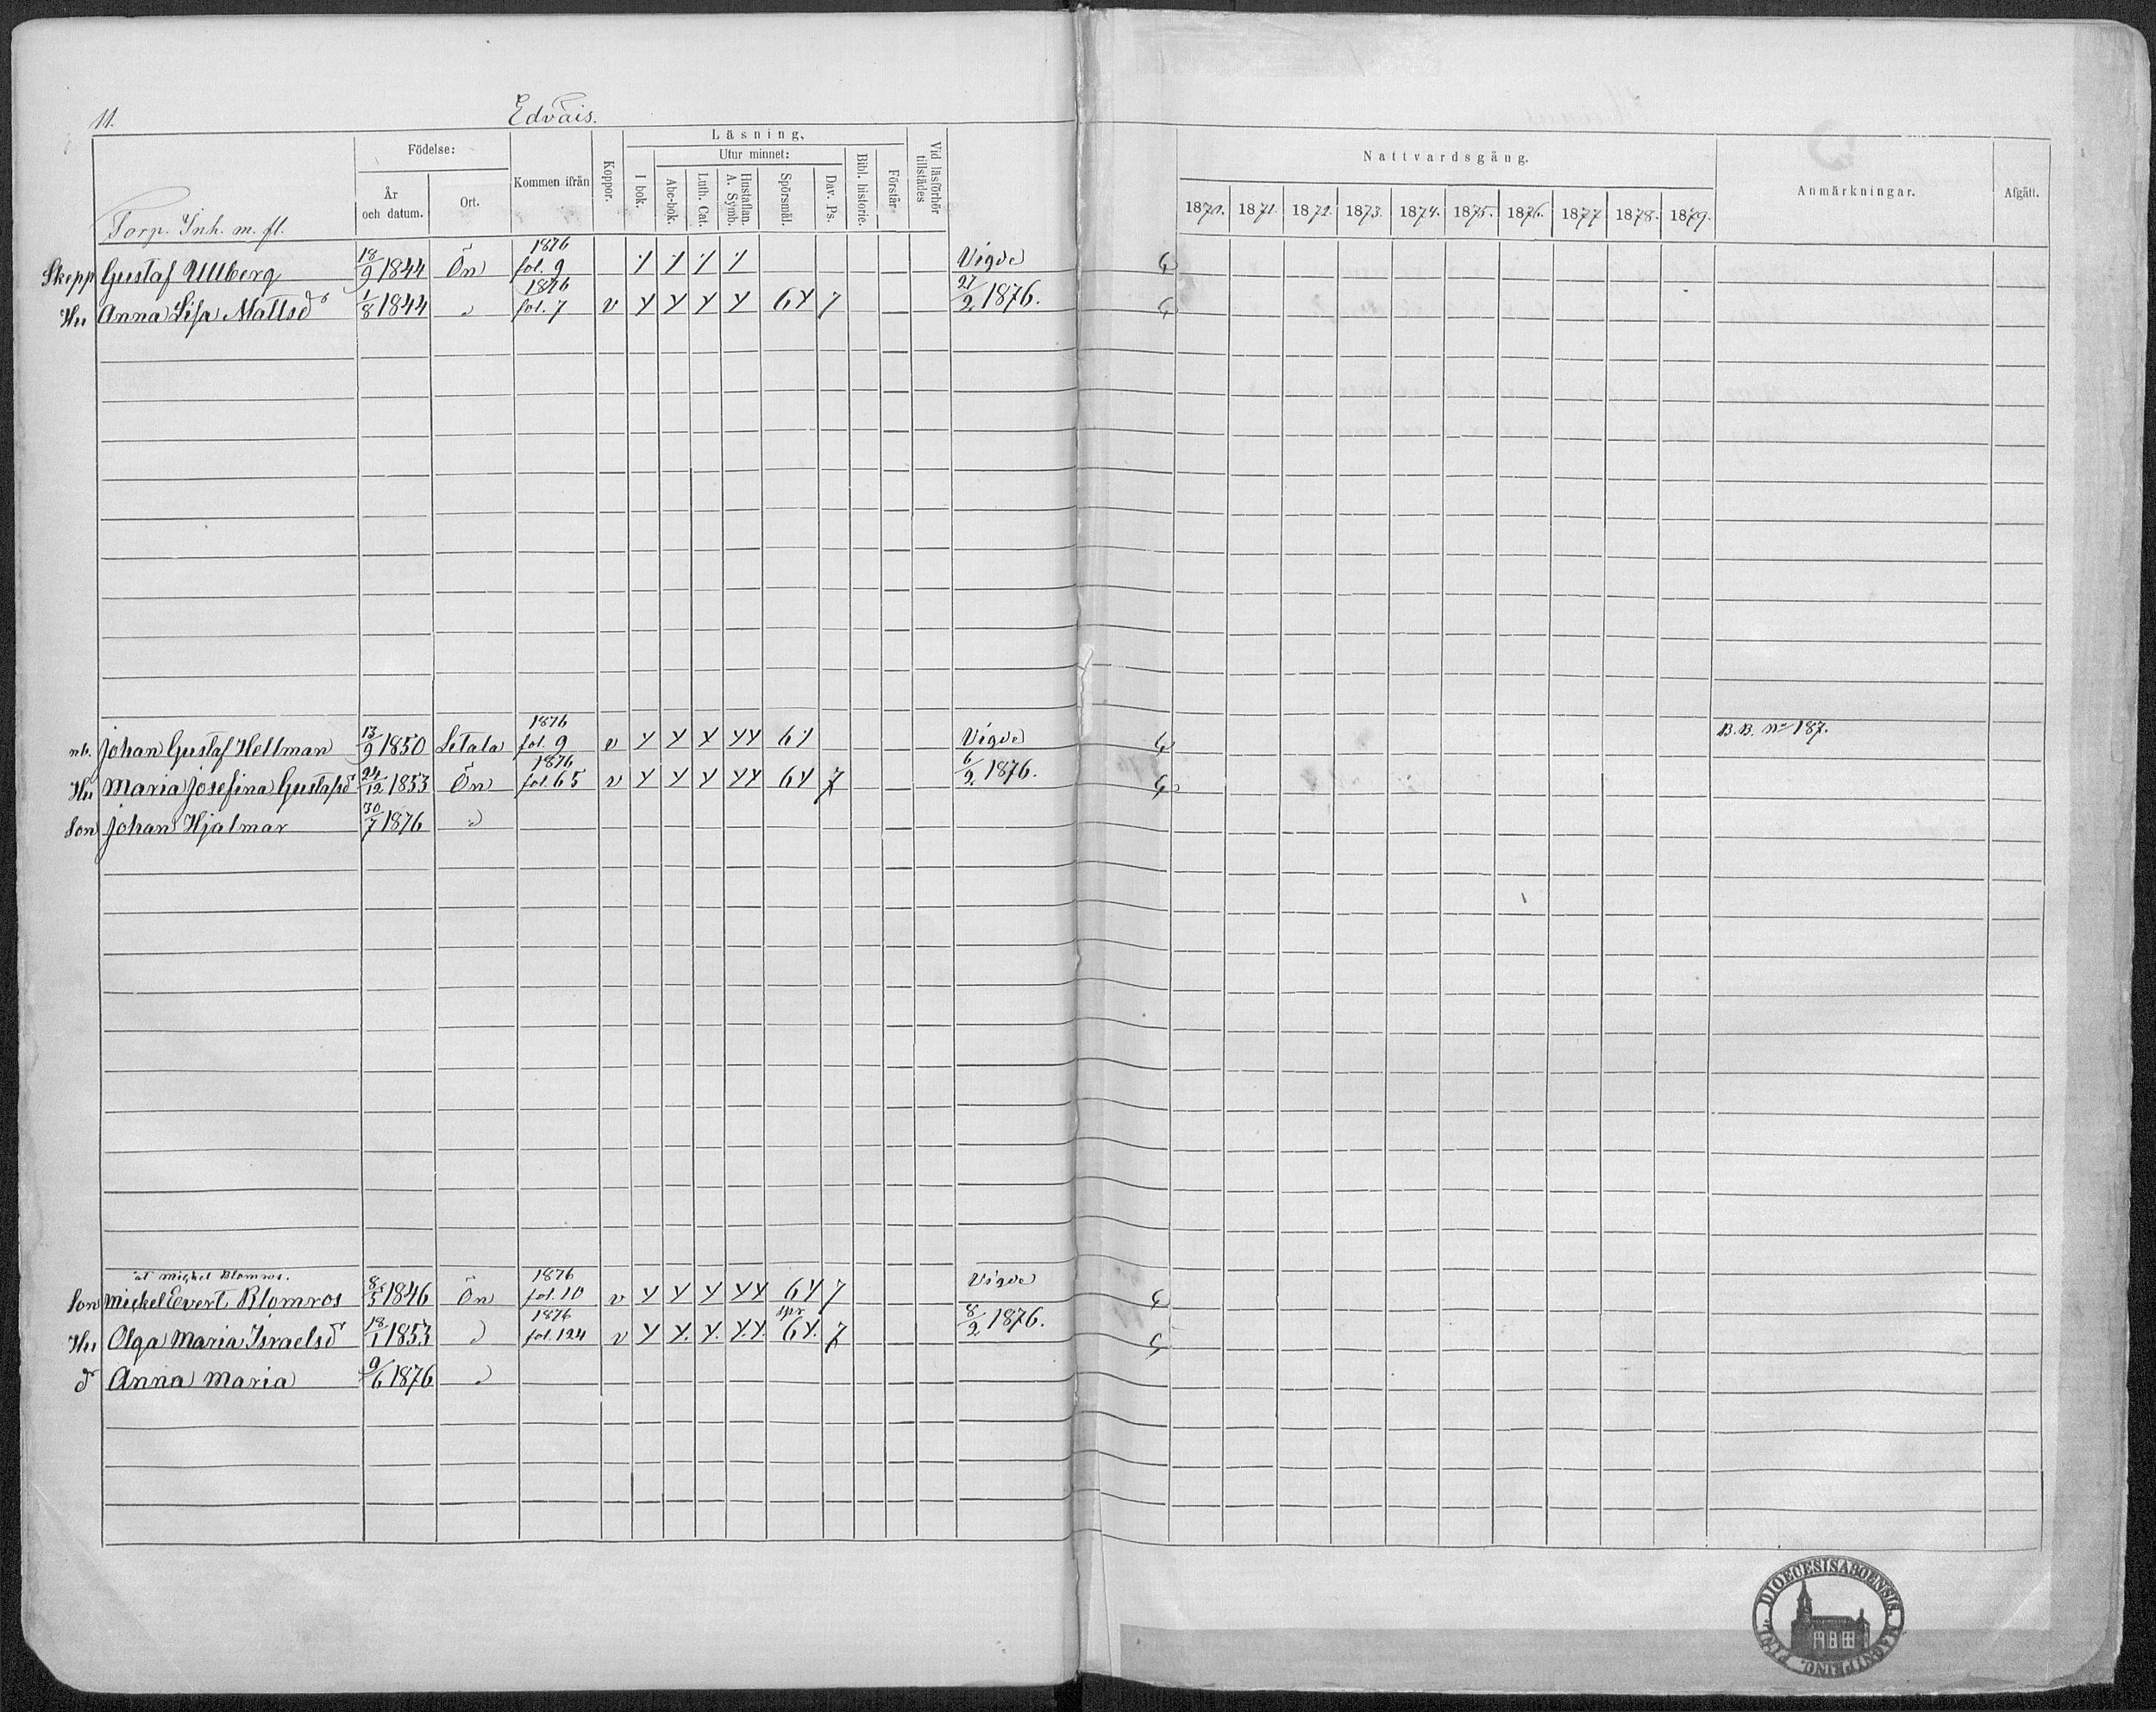 11.
Edväis.
Torp. Inh. m. fl.
Födelse:
År och datum.
Ort.
Kommen ifrån
Koppor.
Läsning.
I bok.
Utur minnet:
Abc-bok.
Luth. Cat.
Hustaflan. A. Symb.
Spörsmål.
Dav. Ps.
Bibl. historie.
Förstår
Vid läsförhör tillstädes
Nattvardsgång.
1870. 1871. 1872. 1873. 1874. 1875. 1876. 1877 1878. 1879.
Anmärkningar.
Afgått.
Skepp Gustaf Ullberg 18/9 1844 Ön 1876 fol. 9 Vigde
Hu Anna Lisa Mattsd 1/8 1844 " 1876 fol. 7 v Y Y Y Y 6 Y 7 27/2 1876.
Johan Gustaf Hellman 13/9 1850 Letala 1876 fol. 9 v Y Y Y YY 6 Vigde B.B. No 187.
Hu Maria Josefina Gustafsd 24/12 1853 Ön 1876 fol. 65 v Y Y Y YY 6 Y 7 6/2 1876.
Son Johan Hjalmar 30/7 1876 "
af Mickel Blomros.
Son Mickel Evert Blomros 8/5 1846 Ön 1876 fol. 10 v Y Y Y YY 6 Y 7 Vigde
Hu Olga Maria Israelsd 18/1 1853 " 1876 fol. 124 v Y Y. Y. Y.Y. spr 6 Y. 7 8/2 1876.
d Anna Maria 9/6 1876 "
DIOECESIS ABOENSIS